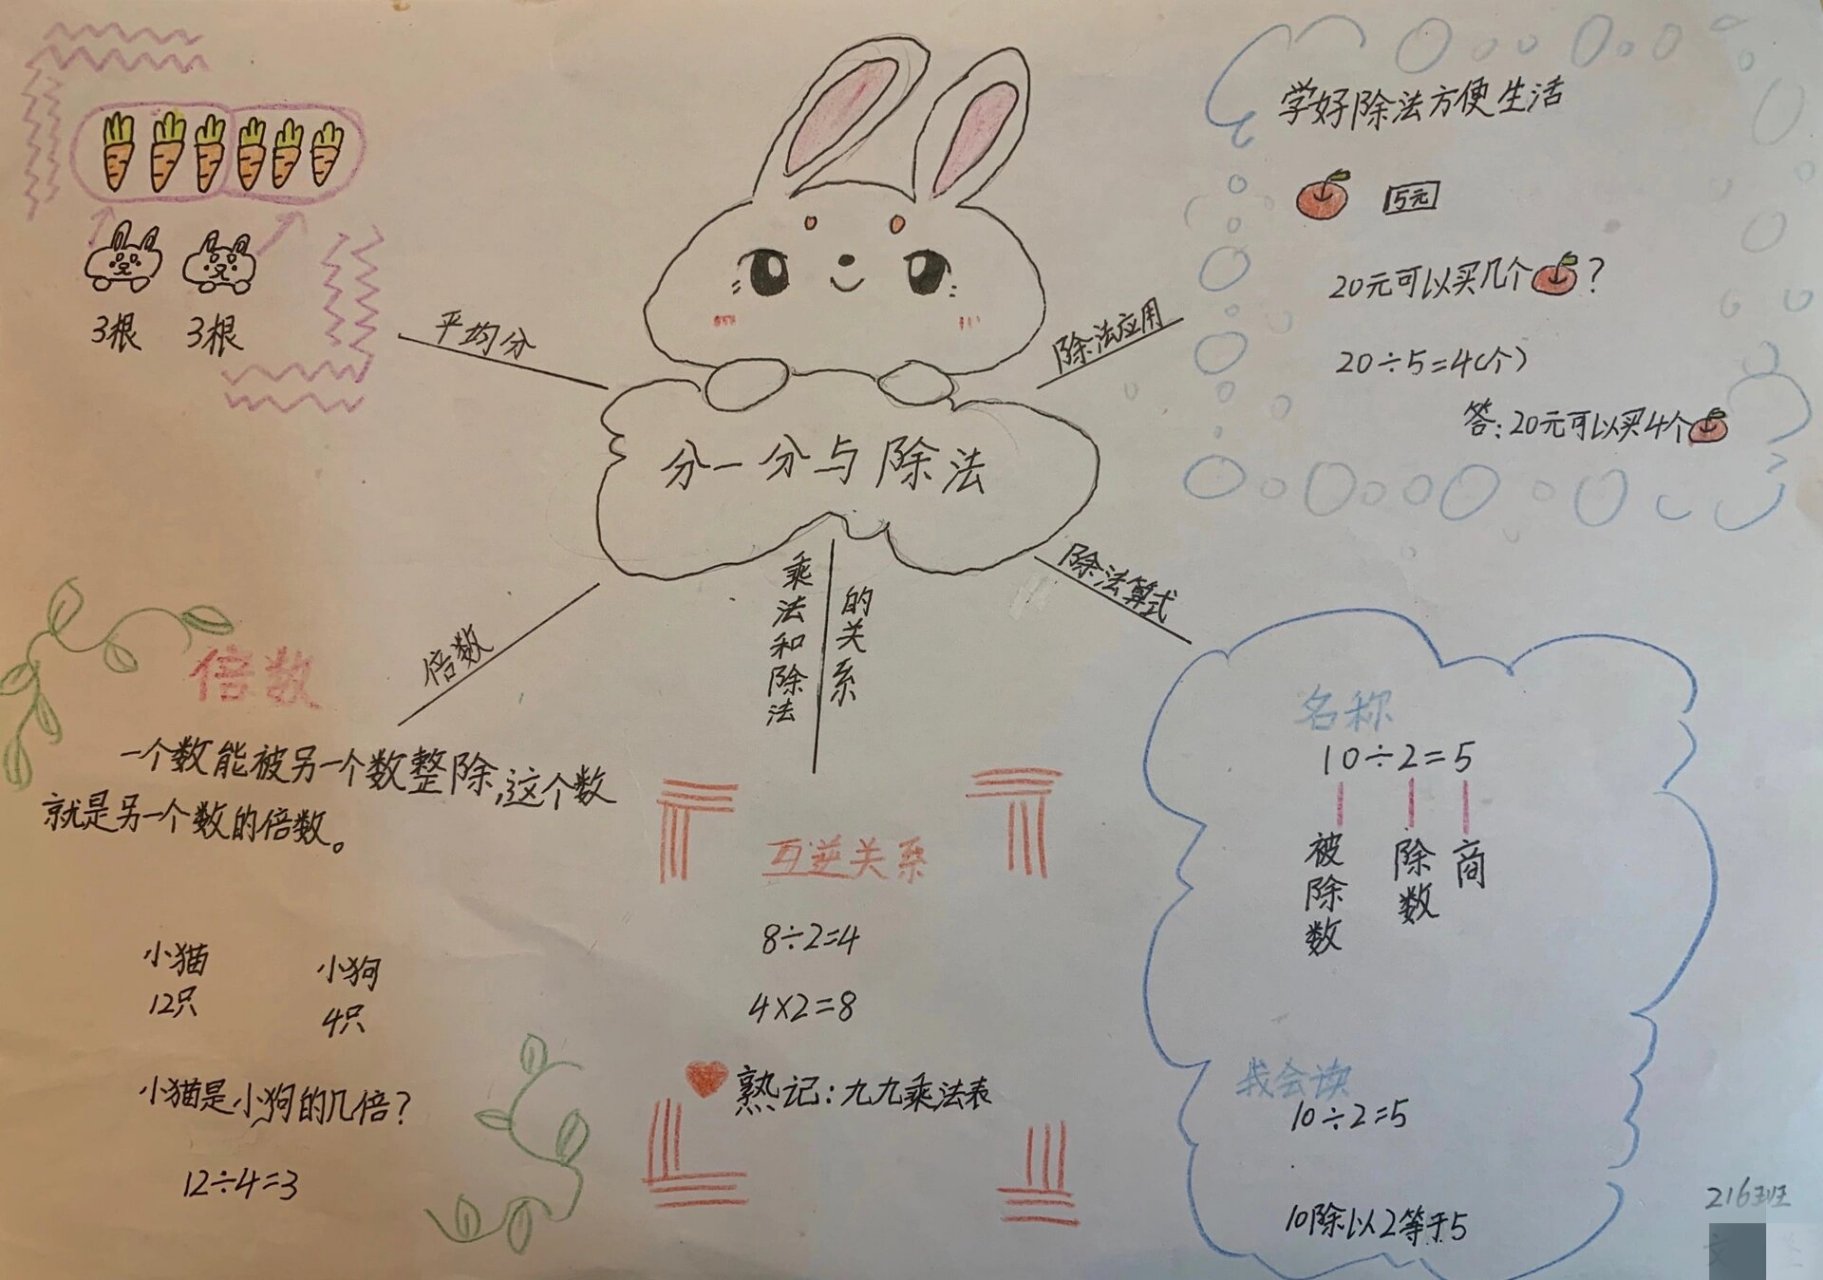 分一分与除法
平均分
3根 3根
除法应用
学好除法方便生活
5元
20元可以买几个?
20÷5=4(个)
答:20元可以买4个
倍数
倍数
一个数能被另一个数整除,这个数
就是另一个数的倍数。
小猫 小狗
12只 4只
小猫是小狗的几倍?
12÷4=3
乘法和除法
的关系
互逆关系
8÷2=4
4×2=8
熟记:九九乘法表
除法算式
名称
10÷2=5
被除数 除数 商
我会读
10÷2=5
10除以2等于5
216班